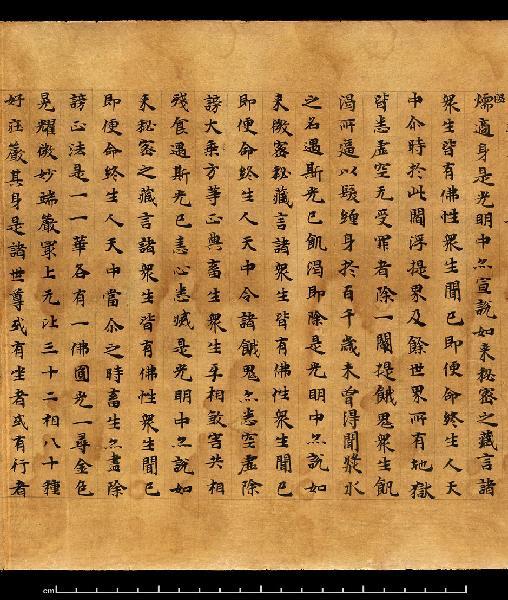 燸適身是光明中亦宣說如來秘密之藏言諸
衆生皆有佛性衆生聞已即便命終生人天
中尒時於此閻浮提界及餘世界所有地獄
皆悉虛空无受罪者除一闡提餓鬼衆生飢
渴所逼以髮纏身於百千歲未曾得聞漿水
之名遇斯光已飢渴即除是光明中亦說如
來微密秘藏言諸衆生皆有佛性衆生聞已
即便命終生人天中令諸餓鬼亦悉空虛除
謗大乘方等正典畜生衆生互相煞害共相
殘食遇斯光已恚心悉滅是光明中亦說如
來秘密之藏言諸衆生皆有佛性衆生聞已
即便命終生人天中當尒之時畜生亦盡除
謗正法是一一華各有一佛圓光一尋金色
晃耀微妙端嚴冣上无比三十二相八十種
好莊嚴其身是諸世尊或有坐者或有行者
cm